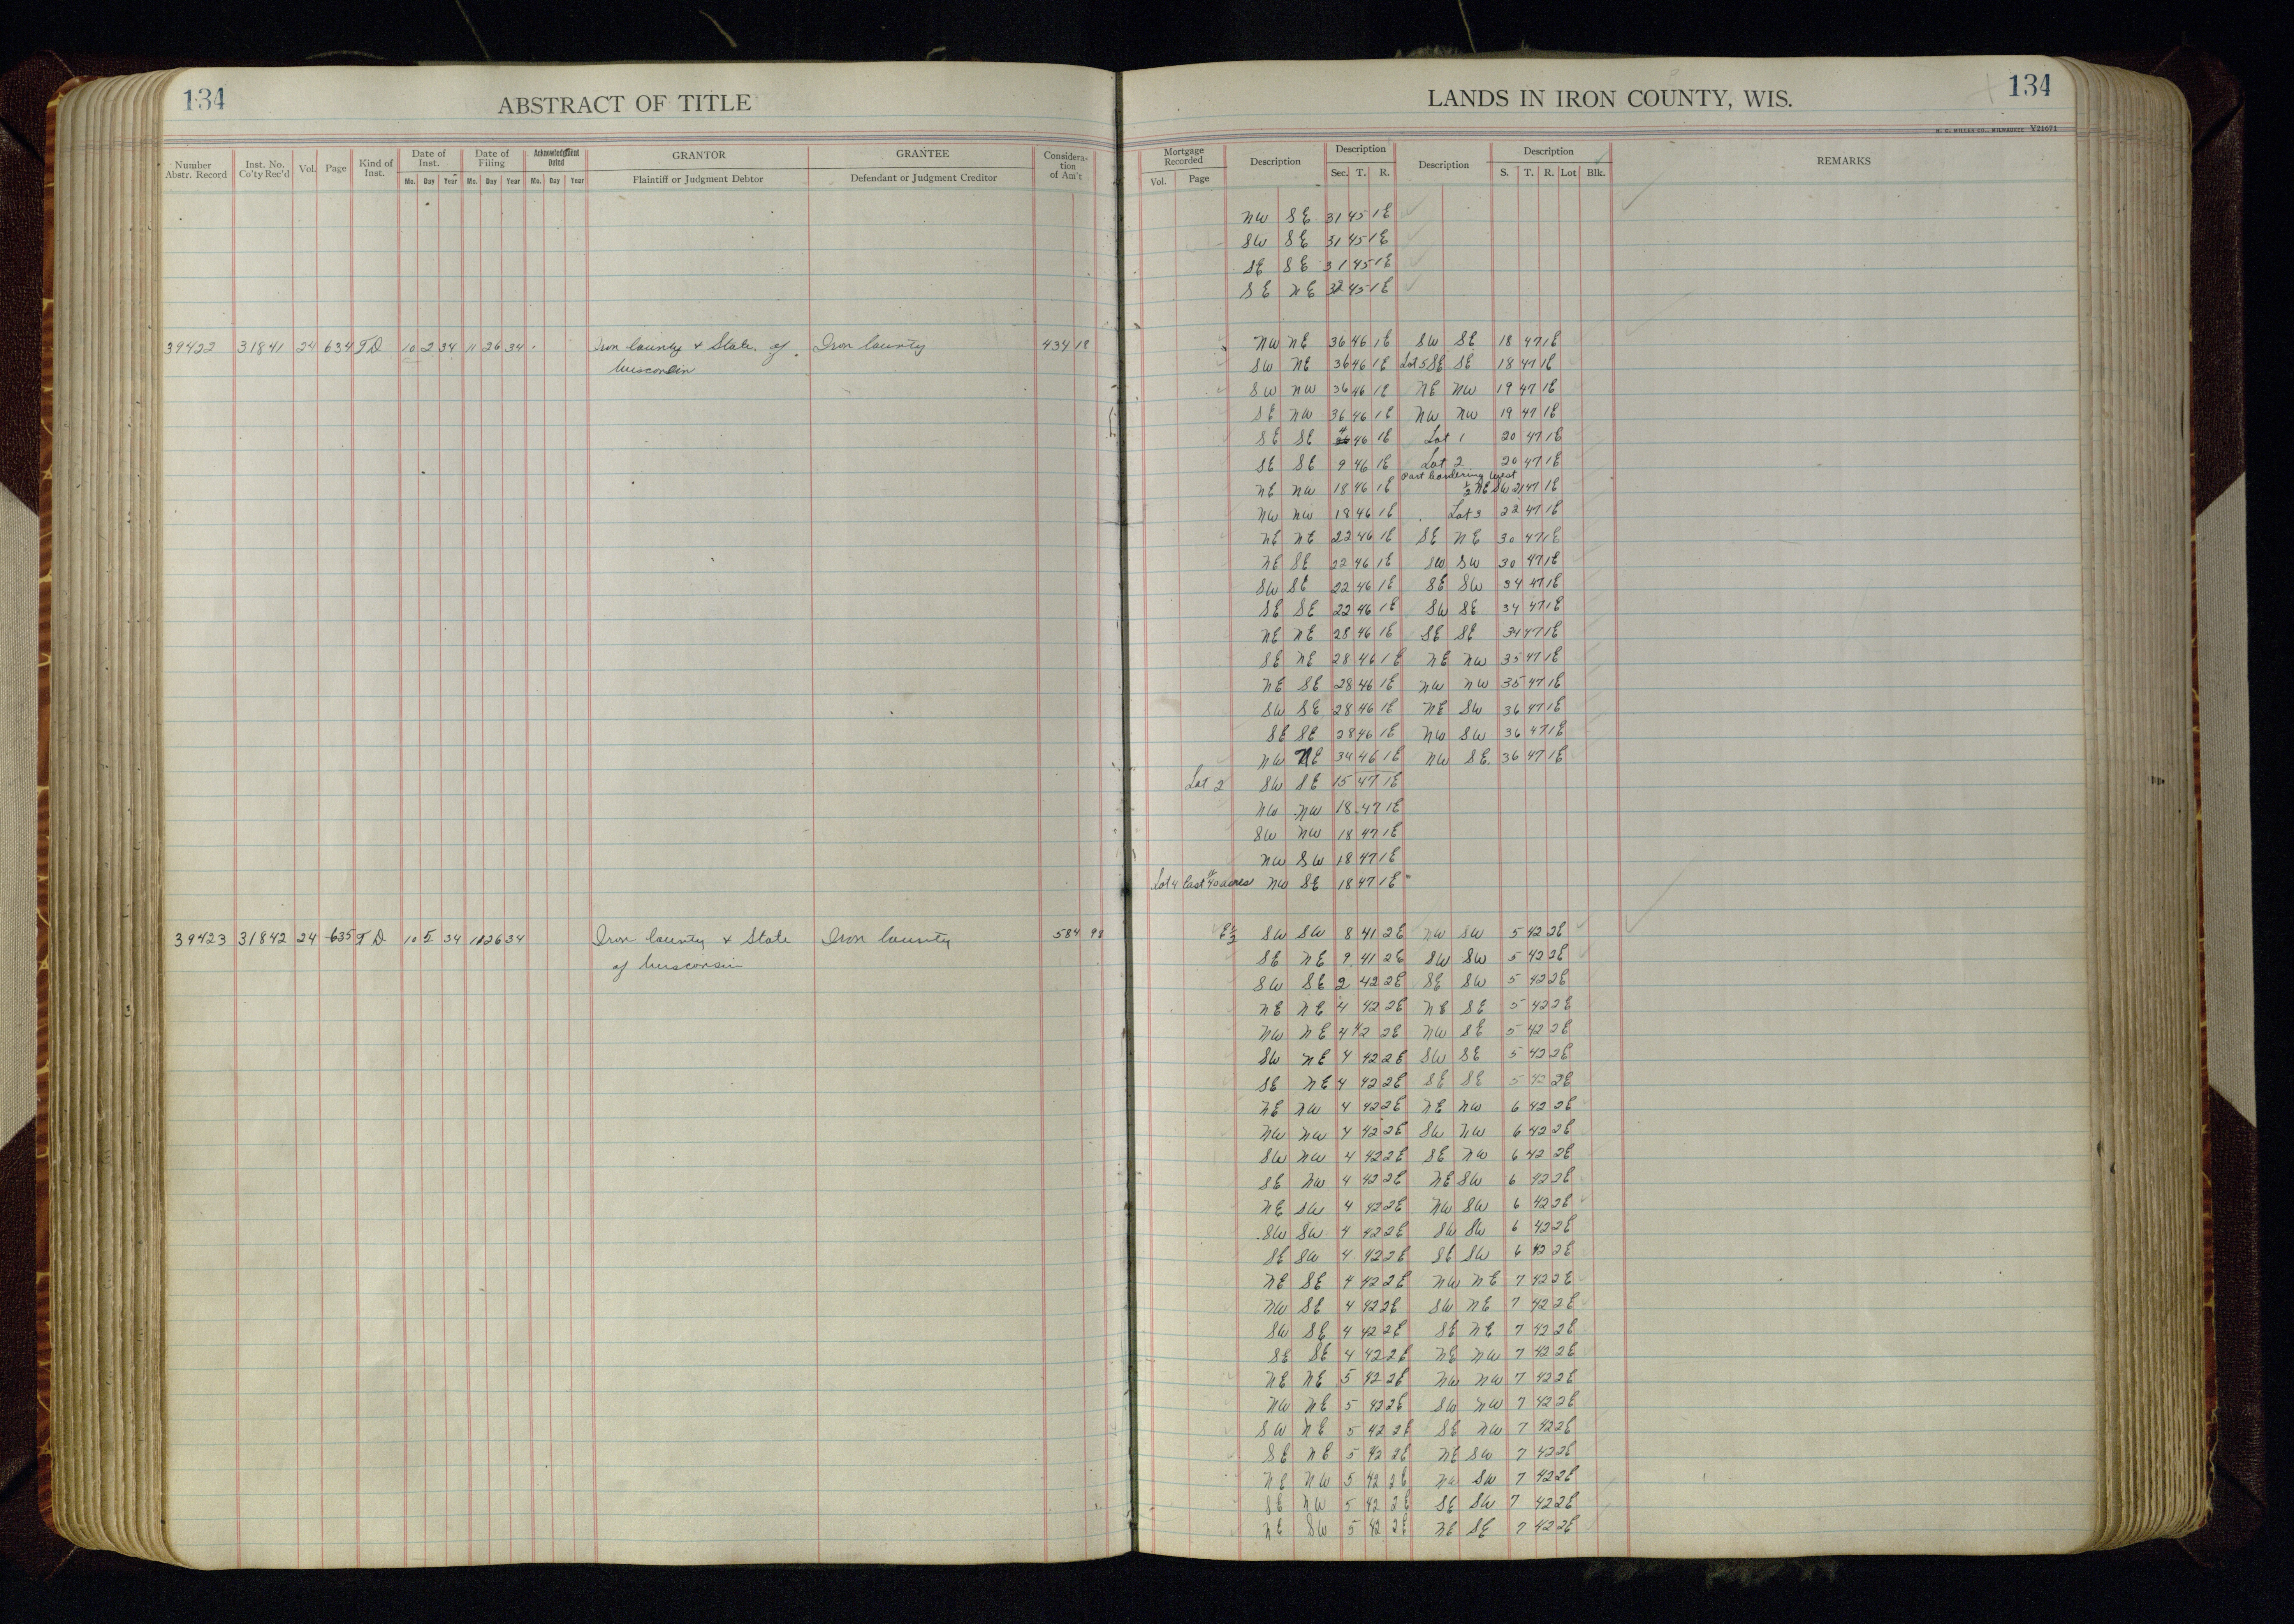 134
ABSTRACT OF TITLE
Number Abstr. Record | Inst. No. Co'ty Rec'd | Vol. | Page | Kind of Inst. | Date of Inst. Mo. Day Year | Date of Filing Mo. Day Year | Acknowledgment Dated Mo. Day Year | GRANTOR Plaintiff or Judgment Debtor | GRANTEE Defendant or Judgment Creditor | Considera-tion of Am't
39422 31841 24 634 TD 10 2 34 11 26 34 Iron County & State of Iron County 434 18
Wisconsin
39423 31842 24 635 TD 10 5 34 11 26 34 Iron County & State Iron County 584 98
of Wisconsin
LANDS IN IRON COUNTY, WIS.
134
H. C. MILLER CO., MILWAUKEE V21671
Mortgage Recorded Vol. Page | Description | Description Sec. T. R. | Description | Description S. T. R. Lot Blk. | REMARKS
NW SE 31 45 1E
SW SE 31 45 1E
SE SE 31 45 1E
SE NE 32 45 1E
NW NE 36 46 1E SW SE 18 47 1E
SW NE 36 46 1E Lot 5 SE SE 18 47 1E
SW NW 36 46 1E NE NW 19 47 1E
SE NW 36 46 1E NW NW 19 47 1E
SE SE 46 1E Lot 1 20 47 1E
SE SE 9 46 1E Lot 2 20 47 1E
Part bordering West
NE NW 18 46 1E ½ NE SW 21 47 1E
NW NW 18 46 1E Lot 3 22 47 1E
NE NE 22 46 1E SE NE 30 47 1E
NE SE 22 46 1E SW SW 30 47 1E
SW SE 22 46 1E SE SW 34 47 1E
SE SE 22 46 1E SW SE 34 47 1E
NE NE 28 46 1E SE SE 34 47 1E
SE NE 28 46 1E NE NW 35 47 1E
NE SE 28 46 1E NW NW 35 47 1E
SW SE 28 46 1E NE SW 36 47 1E
SE SE 28 46 1E NW SW 36 47 1E
NW NE 34 46 1E NW SE 36 47 1E
Lot 2 SW SE 15 47 1E
NW NW 18 47 1E
SW NW 18 47 1E
NW SW 18 47 1E
Lot 4 East 40 acres NW SE 18 47 1E
E½ SW SW 8 41 2E NW SW 5 42 2E
SE NE 9 41 2E SW SW 5 42 2E
SW SE 2 42 2E SE SW 5 42 2E
NE NE 4 42 2E NE SE 5 42 2E
NW NE 4 42 2E NW SE 5 42 2E
SW NE 4 42 2E SW SE 5 42 2E
SE NE 4 42 2E SE SE 5 42 2E
NE NW 4 42 2E NE NW 6 42 2E
NW NW 4 42 2E SW NW 6 42 2E
SW NW 4 42 2E SE NW 6 42 2E
SE NW 4 42 2E NE SW 6 42 2E
NE SW 4 42 2E NW SW 6 42 2E
SW SW 4 42 2E SW SW 6 42 2E
SE SW 4 42 2E SE SW 6 42 2E
NE SE 4 42 2E NW NE 7 42 2E
NW SE 4 42 2E SW NE 7 42 2E
SW SE 4 42 2E SE NE 7 42 2E
SE SE 4 42 2E NE NW 7 42 2E
NE NE 5 42 2E NW NW 7 42 2E
NW NE 5 42 2E SW NW 7 42 2E
SW NE 5 42 2E SE NW 7 42 2E
SE NE 5 42 2E NE SW 7 42 2E
NE NW 5 42 2E NW SW 7 42 2E
SE NW 5 42 2E SE SW 7 42 2E
NE SW 5 42 2E NE SE 7 42 2E